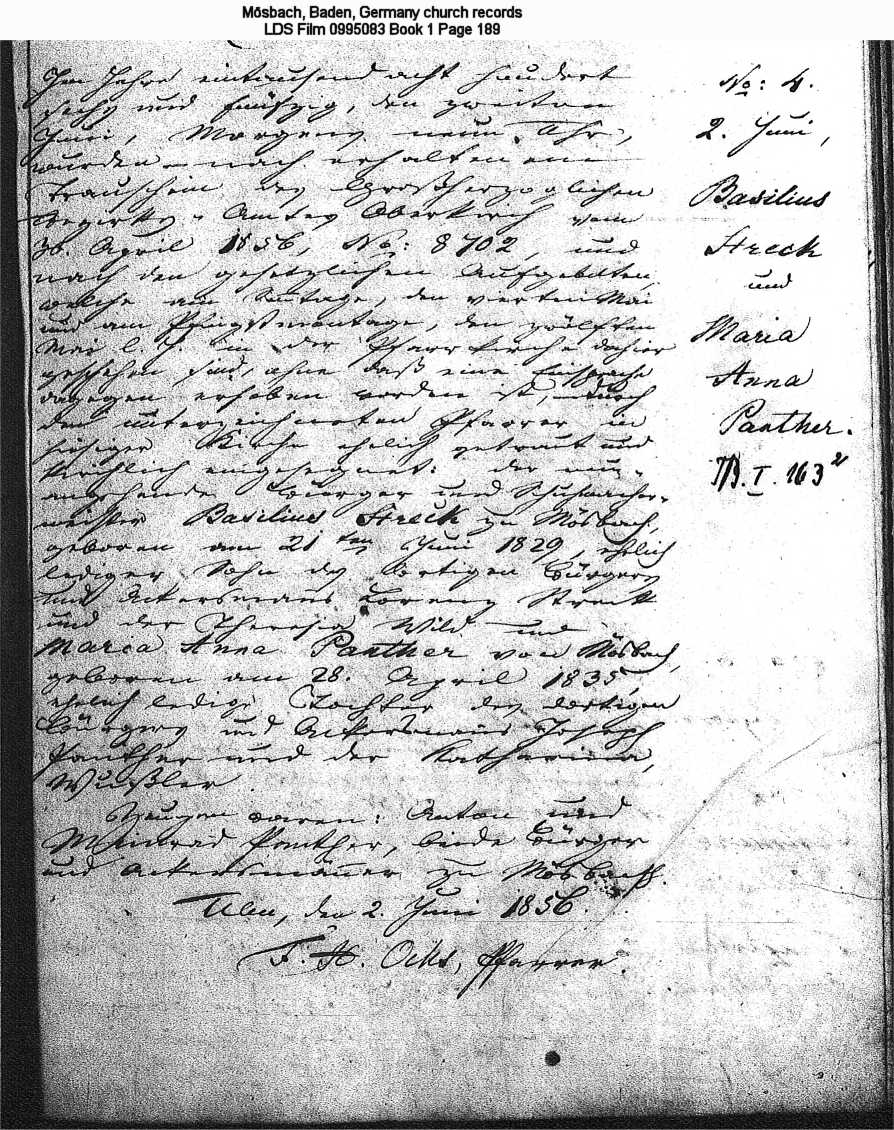 Mösbach, Baden, Germany church records
LDS Film 0995083 Book 1 Page 189
Im Jahre eintausend acht hundert
sechs und fünfzig, den zweiten
Juni, Morgens neun Uhr,
wurden nach erhaltenem
Trauschein des Großherzoglichen
Bezirks-Amtes Oberkirch vom
30. April 1856, No: 8702, und
nach den gesetzlichen Aufgeboten,
welche am Sontage, den vierten Mai
und am Pfingstmontage, den zwölften
Mai l. J. in der Pfarrkirche dahier
geschehen sind, ohne daß eine Einsprache
dagegen erhoben worden ist, durch
den unterzeichneten Pfarrer in
hiesiger Kirche ehelich getraut und
kirchlich eingesegnet: der nun-
angehende Bürger und Schuhmacher-
meister Basilius Streck zu Mösbach,
geboren am 21ten Juni 1829, ehelich
lediger Sohn des dortigen Bürgers
und Ackersmanns Lorenz Streck
und der Theresia Wild und
Maria Anna Panther von Mösbach,
geboren am 28. April 1835,
ehelich ledige Tochter des dortigen
Bürgers und Ackersmanns Joseph
Panther und der Katharina,
Wußler.
Zeugen waren: Anton und
Meinrad Panther, beide Bürger
und Ackersmänner zu Mösbach.
Ulm, den 2. Juni 1856.
F. X. Ochs, Pfarrer.
No: 4.
2. Juni,
Basilius
Streck
und
Maria
Anna
Panther.
B. I. 163